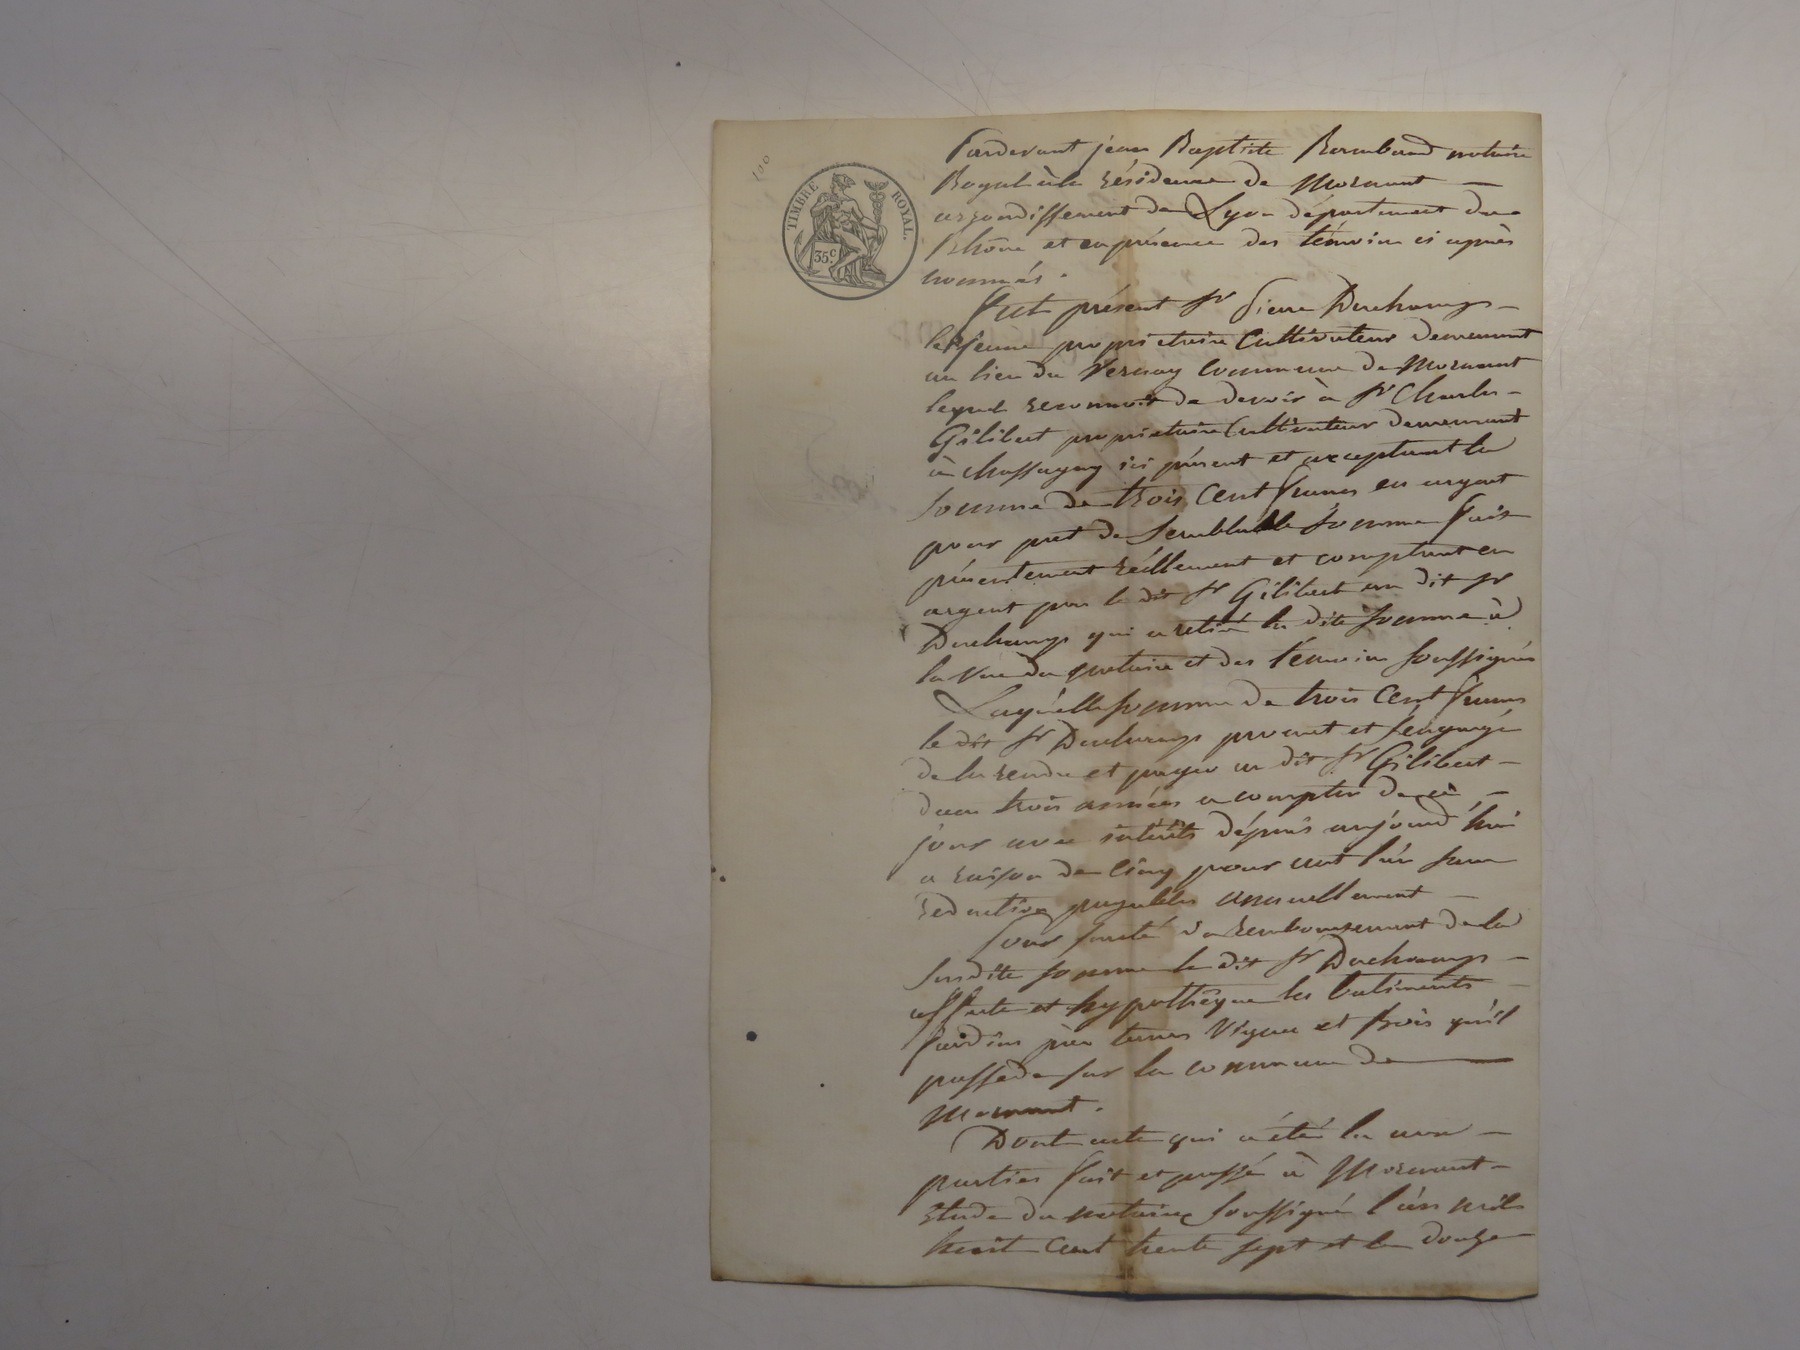 100
TIMBRE ROYAL.
35c
Pardevant jean Baptiste Rambaud notaire
Royal à la résidence de Mornant —
arrondissement de Lyon département du
Rhône et en présence des témoins ci après
nommés.
Fut présent Sr Pierre Duchamp —
le jeune propriétaire Cultivateur demeurant
au lieu du Vernay Commune de Mornant
lequel reconnoit de devoir à Sr Charles —
Gilibert propriétaire Cultivateur demeurant
à Chassagny ici présent et acceptant la
somme de trois Cent francs en argent
pour pret de Semblable Somme fait
présentement réellement et comptant en
argent par le dit Sr Gilibert au dit Sr
Duchamp qui a retiré la dite Somme à
la vue du notaire et des témoins soussignés
Laquelle Somme de trois Cent francs
le dit Sr Duchamp promet et s'engage
de la rendre et payer au dit Sr Gilibert —
dans trois années a compter de cè —
jour avec intérêts dépuis aujourd'hui
a raison de Cinq pour cent l'an sans
réduction payables annuellement —
Pour sureté du remboursement de la
Susdite somme le dit Sr Duchamp —
affecte et hypothèque les batiments —
Jardins près terres Vignes et Bois qu'il
possede sur la commune de —
Mornant.
Dont acte qui a été lu aux —
parties fait et passé à Mornant —
Etude du notaire soussigné l'an mil
huit Cent trente sept et le douze